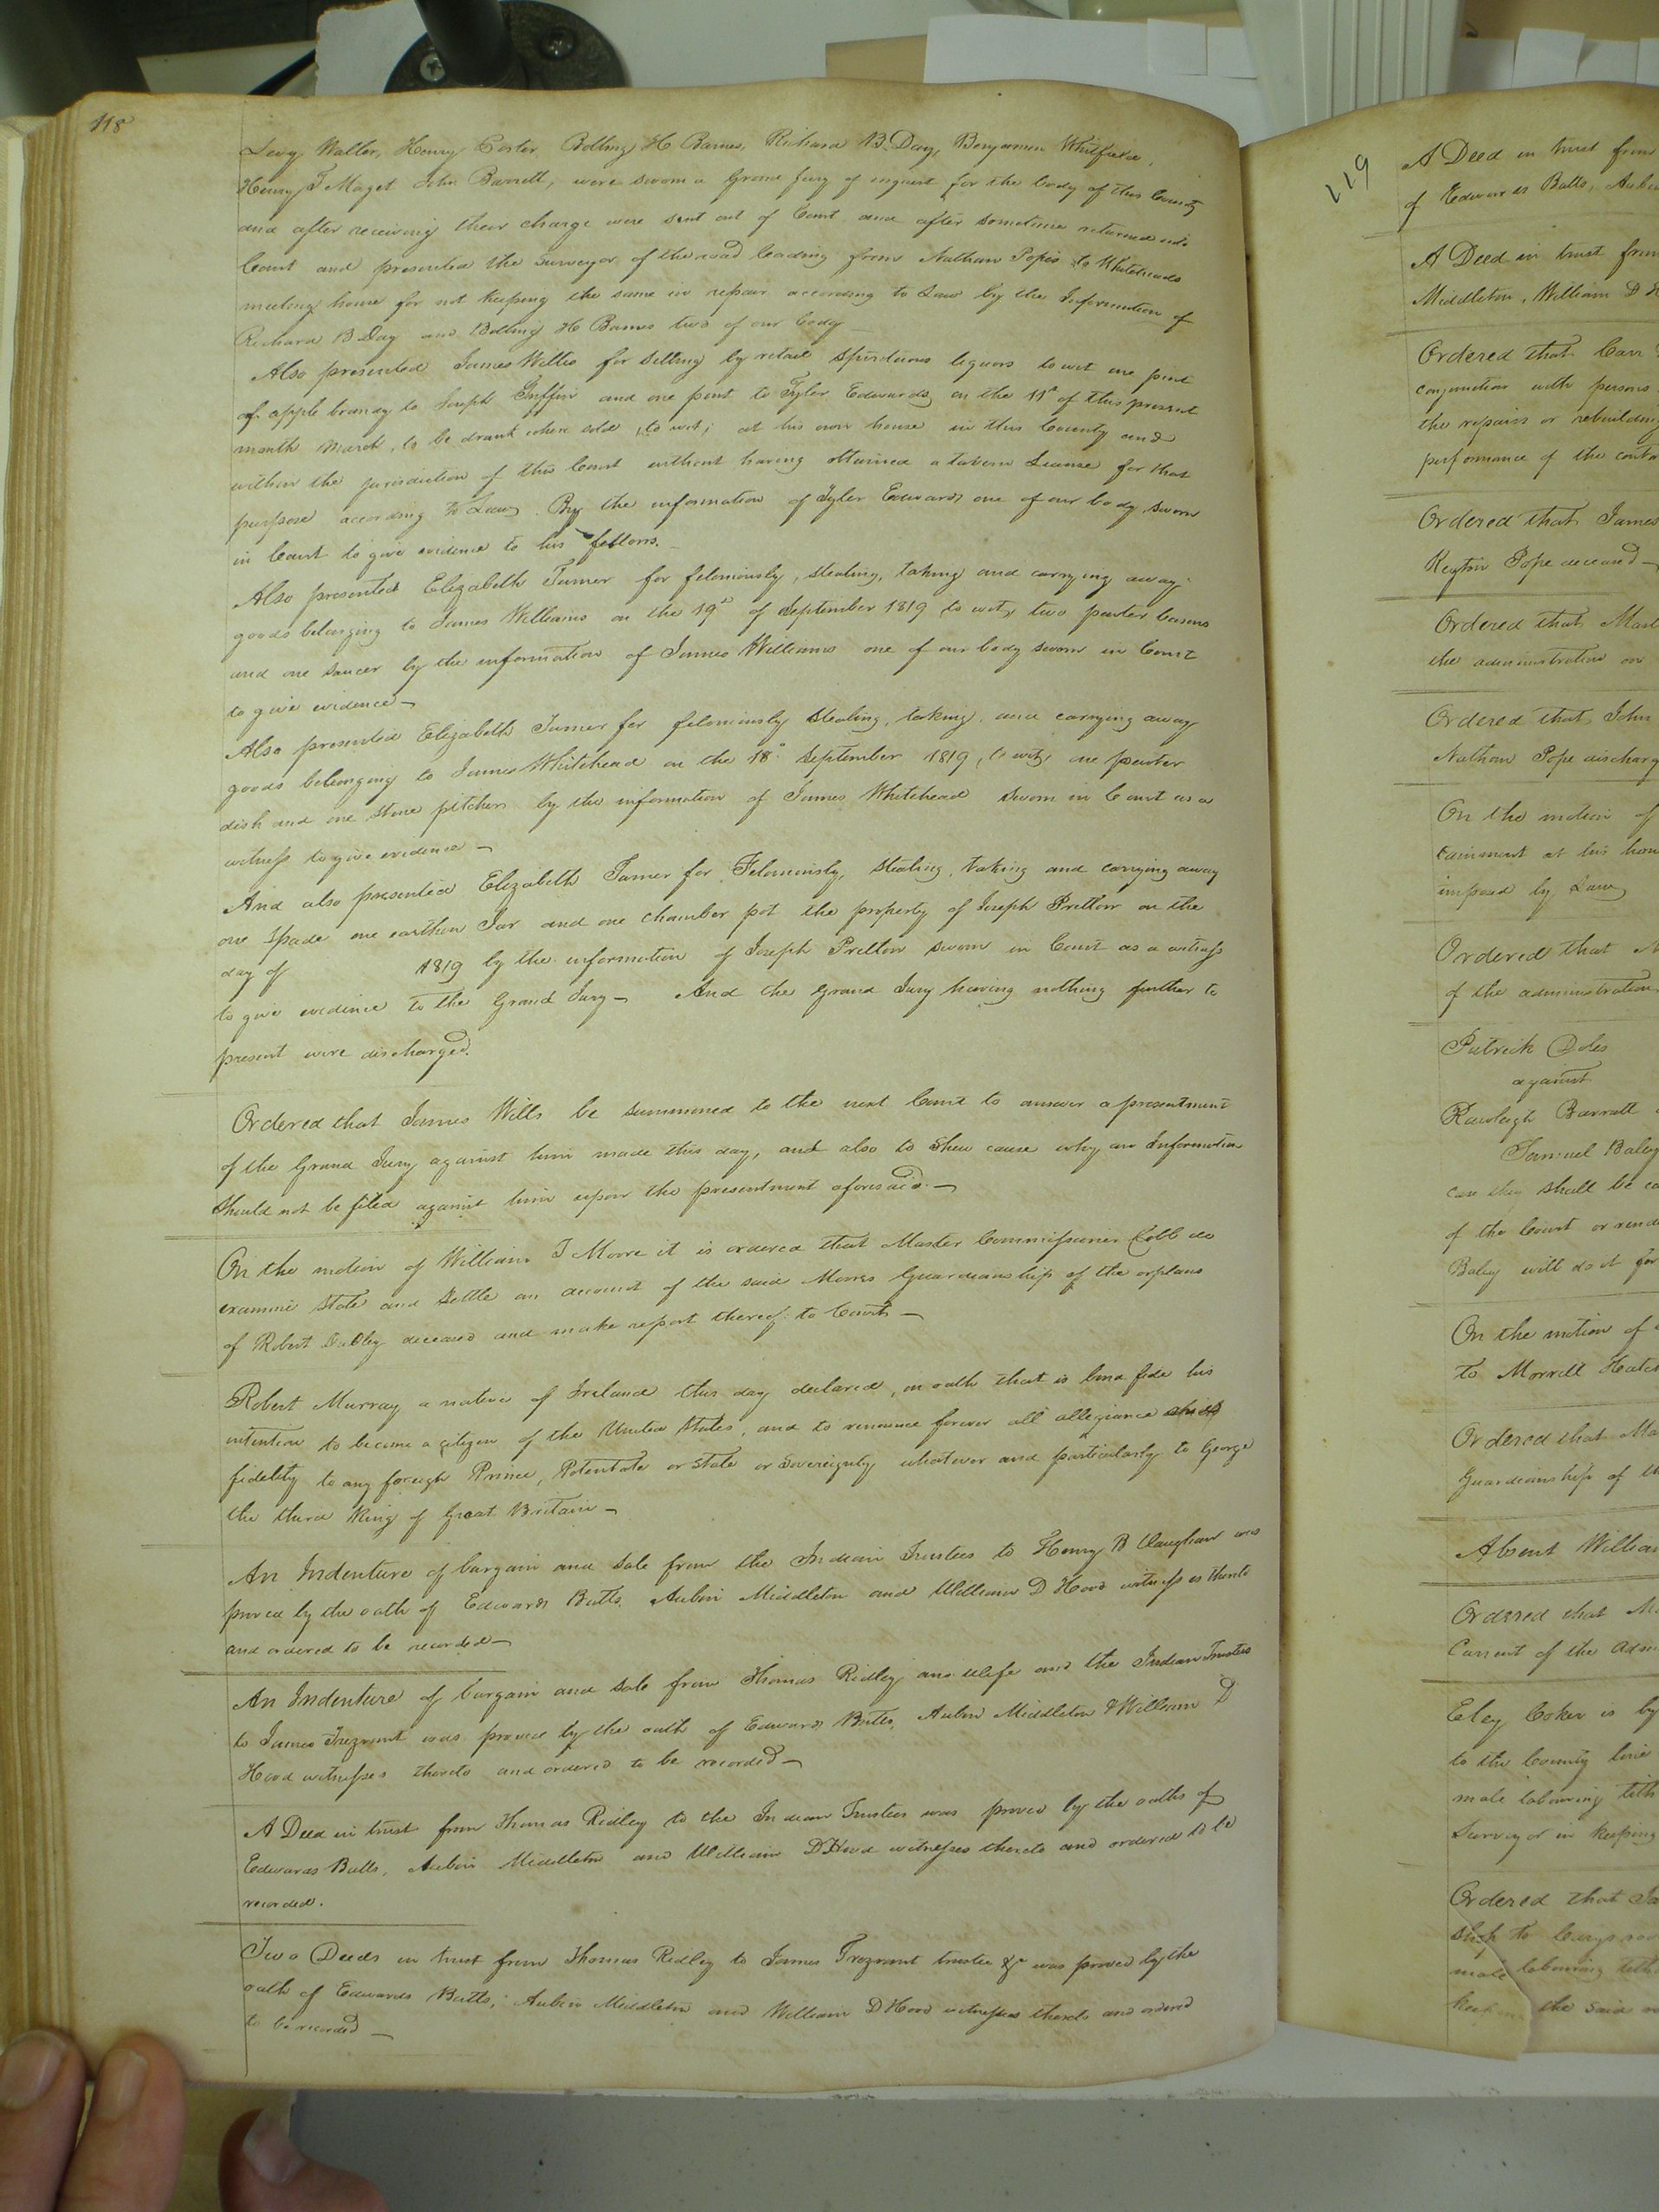 118
Levy Waller, Henry Carter, Bolling H Barnes, Richard B. Day, Benjamin Whitfield,
Henry T Maget John Barrett, were sworn a Grand Jury of inquest for the body of this County
and after receiving their charge were sent out of Court and after sometime returned into
Court and presented the surveyor of the road leading from Nathan Popes to Whiteheads
meeting house for not keeping the same in repair according to Law by the Information of
Richard B Day and Bolling H Barnes two of our body
Also presented James Willis for selling by retail spirituous liquors to wit one pint
of apple brandy to Joseph Griffin and one pint to Tyler Edwards on the 11th of this present
month March, to be drank where sold, to wit; at his own house in this County and
within the jurisdiction of this Court without having obtained a tavern License for that
purpose according to Law. By the information of Tyler Edwards one of our body sworn
in Court to give evidence to his fellows.
Also presented Elizabeth Turner for feloniously, stealing, taking and carrying away
goods belonging to James Williams on the 19th of September 1819 to wit, two pewter basons
and one saucer by the information of James Williams one of our body sworn in Court
to give evidence —
Also presented Elizabeth Turner for feloniously stealing, taking and carrying away
goods belonging to James Whitehead on the 18th September 1819, to wit, one pewter
dish and one stone pitcher by the information of James Whitehead sworn in Court as a
witness to give evidence —
And also presented Elizabeth Turner for Feloniously, stealing, taking and carrying away
one spade one earthen Jar and one chamber pot the property of Joseph Pretlow on the
day of 1819 by the information of Joseph Pretlow sworn in Court as a witness
to give evidence to the Grand Jury — And the Grand Jury having nothing further to
present were discharged.
Ordered that James Wills be summoned to the next Court to answer a presentment
of the Grand Jury against him made this day, and also to shew cause why an Information
should not be filed against him upon the presentment aforesaid. —
On the motion of William T Moore it is ordered that Master Commissioner Cobb do
examine state and settle an account of the said Moores Guardianship of the orphans
of Robert deceased and make report thereof to Court —
Robert Murray a native of Ireland this day declared, on oath that is bona fide his
intention to become a citizen of the United States, and to renounce forever all allegiance and
fidelity to any foreign Prince, Potentate or State or Sovereignty whatever and particularly to George
the third King of Great Britain —
An Indenture of bargain and sale from the Indian Trustees to Henry B Vaughan was
proved by the oath of Edwards Butts, Aubin Middleton and William D Hood witnesses thereto
and ordered to be recorded —
An Indenture of bargain and sale from Thomas Ridley and Wife and the Indian Trustees
to James Trezvant was proved by the oath of Edwards Butts, Aubin Middleton & William D
Hood witnesses thereto and ordered to be recorded —
A Deed in trust from Thomas Ridley to the Indian Trustees was proved by the oaths of
Edwards Butts, Aubin Middleton and William D Hood witnesses thereto and ordered to be
recorded.
Two Deeds in trust from Thomas Ridley to James Trezvant trustee &c was proved by the
oath of Edwards Butts, Aubin Middleton and William D Hood witnesses thereto and ordered
to be recorded —
119
A Deed in trust from
of Edwards Butts, Aubin
A Deed in trust from
Middleton, William D H
Ordered that Carr
conjunction with persons
the repairs or rebuilding
performance of the contra
Ordered that James
Pope deceased —
Ordered that
the administration on
Ordered that John
Nathan Pope discharg
On the motion of
tainment at his hou
imposed by Law
Ordered that
of the administration
Patrick Doles
against
Rawleigh Barratt
Samuel Baley
case they shall be ca
of the Court or rend
Baley will do it for
On the motion of
to Morrell
Ordered that Ma
Guardianship of th
Absent William
Ordered that
Current of the Adm
Eley Coker is by
to the County line
male labouring tith
Surveyor in keeping
Ordered that Ja
male labouring tith
the said